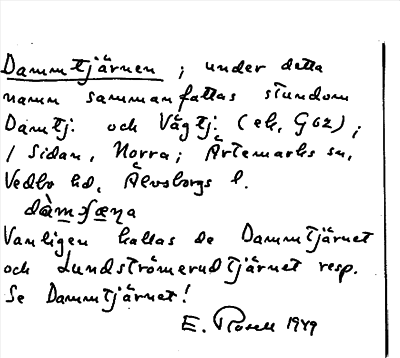 Dammtjärnen ; under detta
namn sammanfattas stundom
Damtj. och Vägtj. (ek, G02) ;
/ Sidan, Norra; Ärtemarks sn,
Vedbo hd, Älvsborgs l.
Vanligen kallas de Dammtjärnet
och Lundströmerudtjärnet resp.
Se Dammtjärnet!
E. Rosell 1949